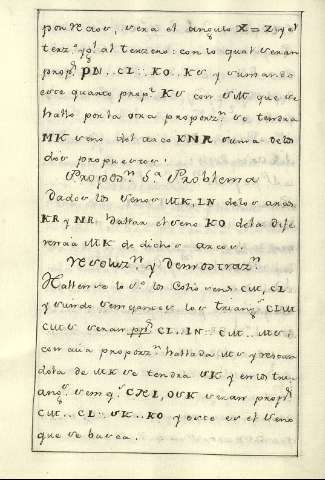 por recaov, vera el angulo X = Z, y el
terz.º yg.l al terzero: con lo qual veran
prop.s PN.. CL:: KO.. KV y sumando
este quarto prop.l KV con VM que se
hallo por la otra proporz.n se tendra
MK seno del arco KNR suma de los
dos propuestos.
Propos.n 5.a Problema
Dados los senos MK, IN de los arcos
KR y NR. hallar el seno KO de la dife
rencia MK de dichos arcos.
resoluz.n y Demostraz.n
Hallense los cosenos CM, CI
y siendo semejantes los triang.s CLM
CMS seran pp.s CI.. IN:: CM.. MS:
con cuia proporz.n hallada MS y restan
dola de MK se tendra SK y en los tri
ang.s sem.s CNI, OSK seran prop.s
CM.. CL:: SK.. KO y este es el seno
que se busca.